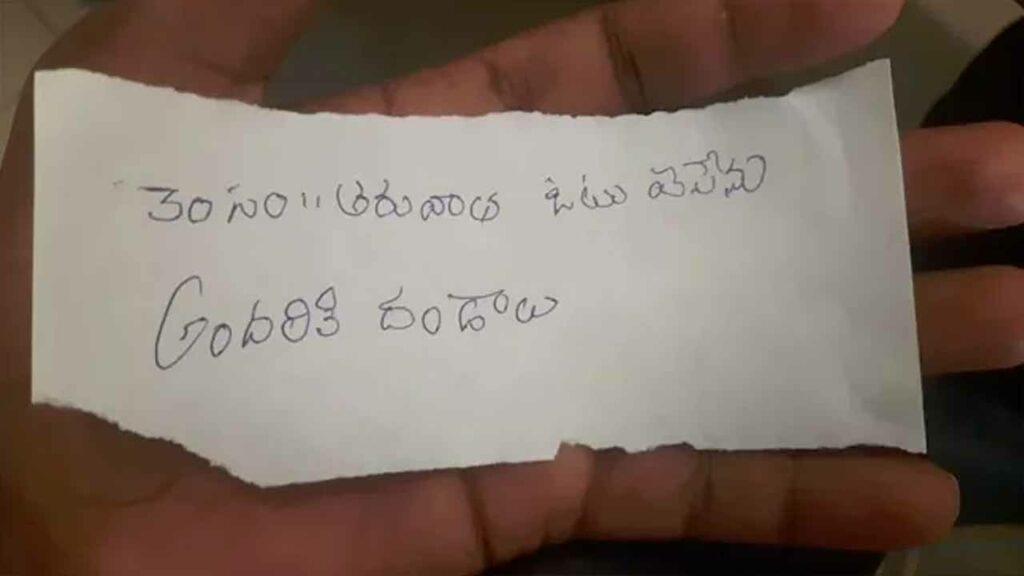 30 సం" తరువాత ఓటు వేసేను
అందరికి దండాలు